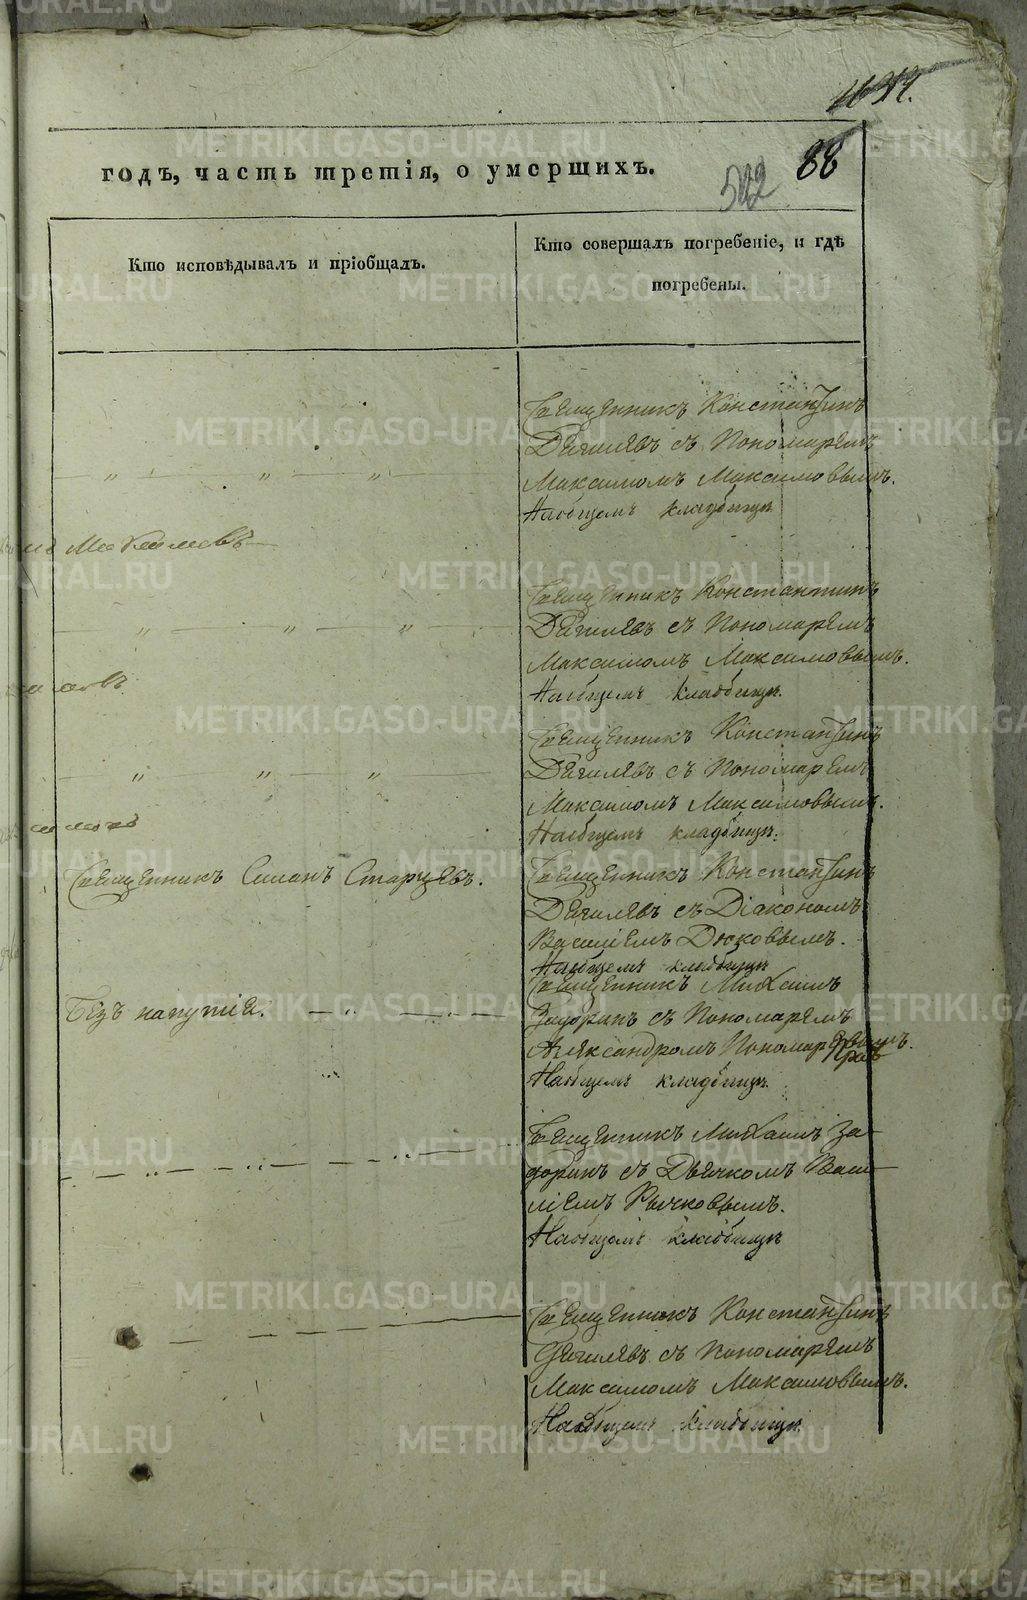 88
годъ, часть третія, о умершихъ.
522
Кто исповѣдывалъ и пріобщалъ.
Кто совершалъ погребеніе, и гдѣ
погребены.
Священникъ Константинъ
Дягилевъ съ Пономаремъ
Максимомъ Максимовымъ.
На общемъ кладбищѣ
Священникъ Константинъ
Дягилевъ съ Пономаремъ
Максимомъ Максимовымъ.
На общемъ кладбищѣ.
Священникъ Константинъ
Дягилевъ съ Пономаремъ
Максимомъ Максимовымъ.
На общемъ кладбищѣ.
Священникъ Симанъ Старцевъ.
Священникъ Константинъ
Дягилевъ съ Діакономъ
Василіемъ
На общемъ кладбищѣ
Безъ напутія.
Священникъ Михаилъ
Задоринъ съ Пономаремъ
Александромъ
На общемъ кладбищѣ.
Священникъ Михаилъ За-
доринъ съ Дьячкомъ Васи-
ліемъ Рычковымъ.
На общемъ кладбищѣ
Священникъ Константинъ
Дягилевъ съ Пономаремъ
Максимомъ Максимовымъ.
На общемъ кладбищѣ.
METRIKI.GASO-URAL.RU